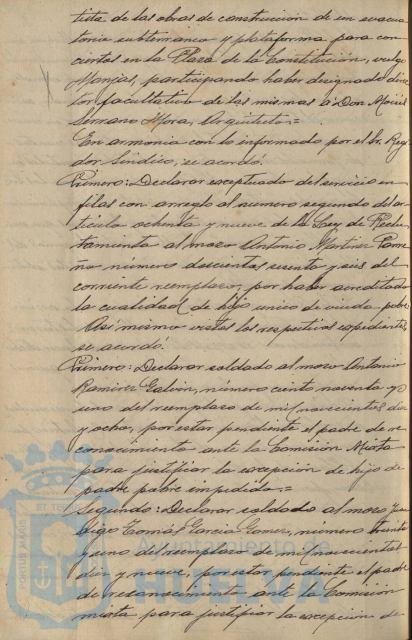 tista de las obras de construccion de un evacua
torio subterráneo y plataforma para con
ciertos en la Plaza de la Constitución, vulgo
Monjas, participando haber designado direc
tor facultativo de las mismas a Don Moisés
Serrano Mora, Arquitecto.=
En armonía con lo informado por el Sr. Regi
dor Síndico, se acordó:
Primero: Declarar exceptuado del servicio en
filas con arreglo al número segundo del ar
tículo ochenta y nueve de la Ley de Reclu
tamiento al mozo Antonio Martinez
número doscientos sesenta y seis del
corriente reemplazo, por haber acreditado
la cualidad de hijo único de viuda pobre.
Asi mismo vistos los respectivos expedientes
se acordó:
Primero: Declarar soldado al mozo Antonio
Ramirez Galván, número ciento noventa y
uno del reemplazo de mil novecientos diez
y ocho, por estar pendiente el padre de re
conocimiento ante la Comisión Mixta
para justificar la excepción de hijo de
padre pobre impedido.=
Segundo: Declarar soldado al mozo
Tomás Garcia Gomez, número treinta
y uno del reemplazo de mil novecientos
diez y nueve, por estar pendiente el padre
de reconocimiento ante la Comisión
mixta para justificar la excepción de
PORTUS MARIS
ET TE
Ayuntamiento de
HUELVA